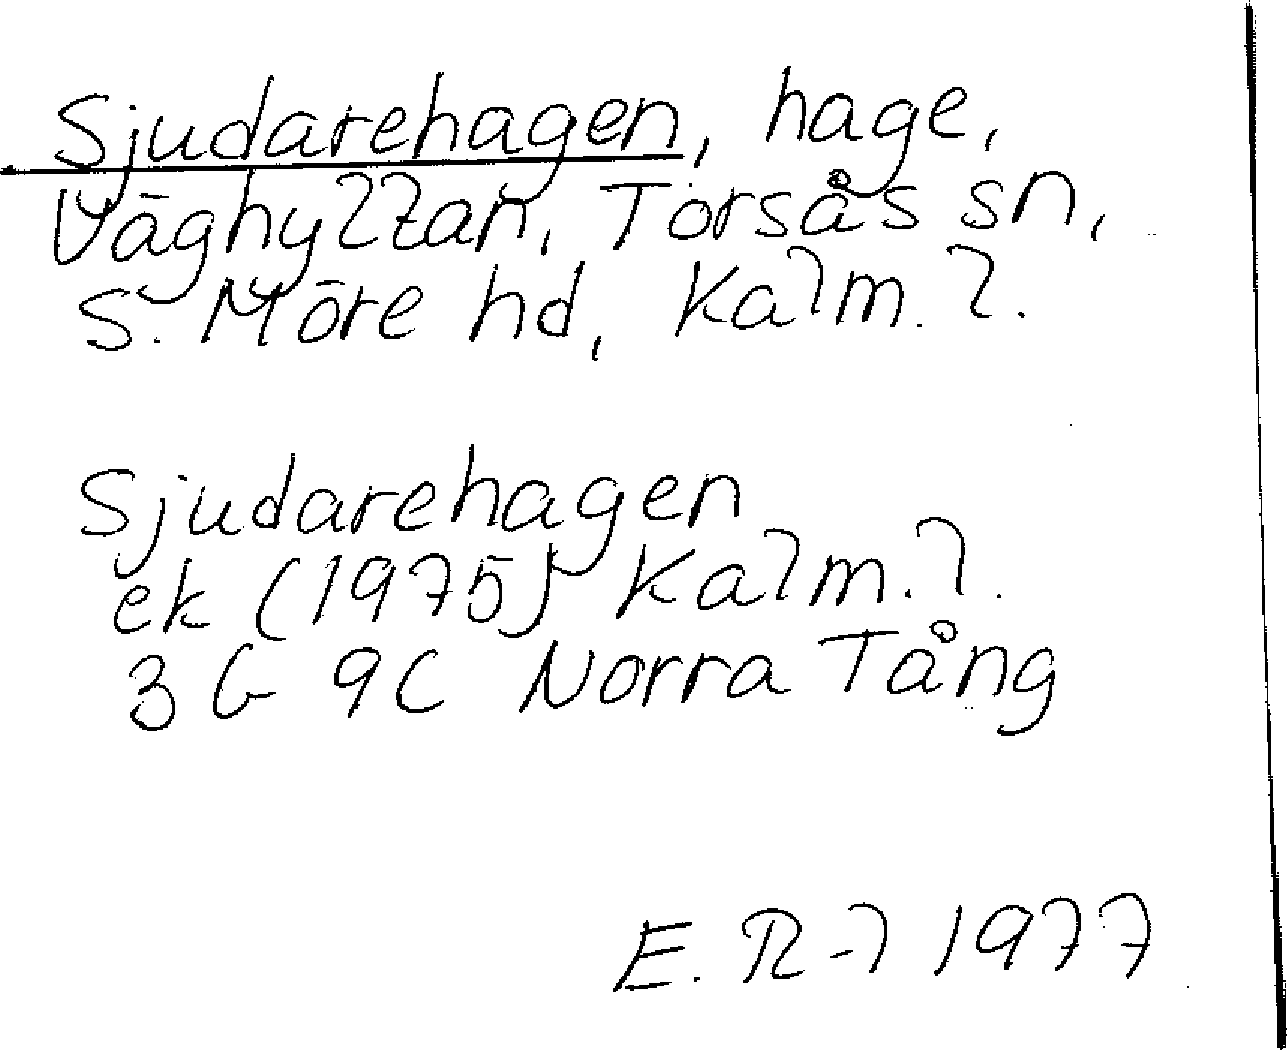 Sjudarehagen, hage,
Väghyltan, Torsås sn,
S. Möre hd, Kalm. l.
Sjudarehagen
ek (1975) Kalm. l.
3 G 9c Norra Tång
E. R-l 1977